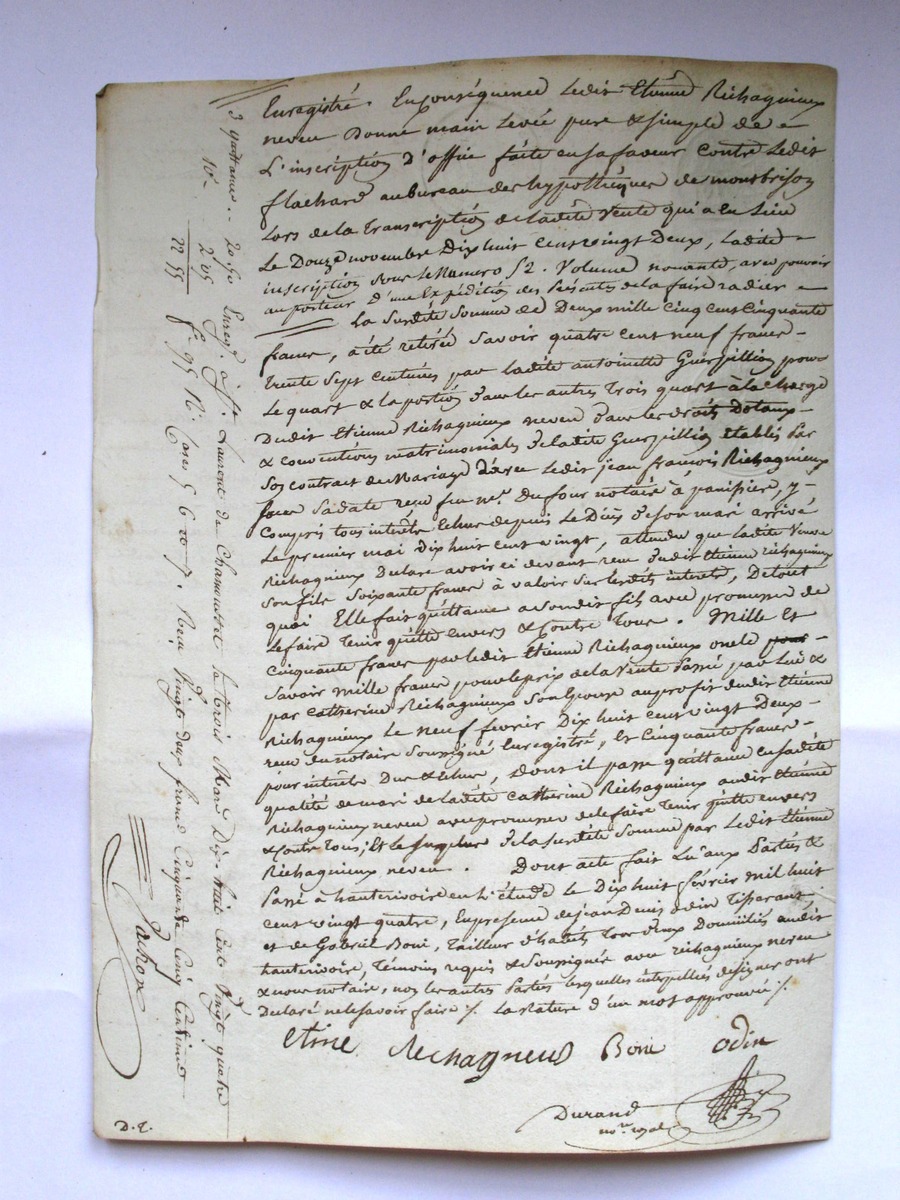 Enregistré. En conséquence Ledit Etienne Richagnieux
neveu Donne main Levée pure & simple de
L'inscription D'office faite en sa faveur contre Ledit
flachard au bureau des hypothèques de montbrison
Lors de la transcription de ladite vente qui a eu Lieu
Le Douze novembre Dix huit cent vingt Deux, Ladite
inscription sous le Numero 52. Volume nonante, avec pouvoir
au porteur d'une Expédition des présentes de la faire radier
La Susdite Somme de Deux mille cinq cent cinquante
francs, a été retirée Savoir quatre cent neuf francs
trente Sept centimes par ladite antoinette Guerpillion pour
Le quart & la portion dans les autres trois quart à la charge
Dudit Etienne Richagnieux neveu dans les droits Dotaux
& conventions matrimoniales de ladite Guerpillion établis par
Son contrat de Mariage avec Ledit jean françois Richagnieux
Sous Sa date reçu feu me. Dufour notaire à panissier, y
Compris tous interêts Echus depuis Le Décès de son mari arrivé
Le premier mai dix huit cent vingt, attendu que Ladite Veuve
Richagnieux Declare avoir ci devant reçu dudit Etienne richagnieux
Son fils Soixante francs à valoir sur lesdits interets, De tout
quoi Elle fait quittance a son dit fils avec promesse de
Le faire Tenir quitte envers & Contre Tous. Mille Et
Cinquante francs par ledit Etienne Richagnieux oncle pour
Savoir mille francs pour le prix de la Vente Passé par Lui &
par Catherine Richagnieux Son Epouse au profit dudit Etienne
Richagnieux Le neuf fevrier Dix huit cent vingt Deux
reçu du notaire Soussigné Enregistré, Et Cinquante francs
pour interets Dus & Echus, Dont il passe quittance en sadite
qualité de mari de ladite Catherine Richagnieux audit Etienne
Richagnieux neveu avec promesse de le faire Tenir quitte envers
& contre Tous; Et le surplus de la susdite Somme par Ledit Etienne
Richagnieux neveu. Dont acte fait Lu aux Parties &
Passé à hauterivoire en L'étude Le Dix huit février mil huit
cent vingt quatre, En presence de jean Denis odin Tisserant,
et de Gabriel Boni, Tailleur d'habits Tous Deux Domiciliés audit
hauterivoire, Témoins requis & Soussignés avec richagnieux neveu
& nous notaire, non les autres Parties lesquelles interpellées de signer ont
Declaré ne le savoir faire /. La Rature d'un mot approuvée /.
etine Rechagneus Boni odin
Durand
no.re royal
D. E.
3 quittances.. 20 50
10.e 2 05
22 55
Enreg.é à St. Laurent de Chamousset le trois Mars Dix huit Cent Vingt quatre
f.o 95 R.o Cases 5 6 et 7. Reçu Vingt deux francs Cinquante Cinq Centimes